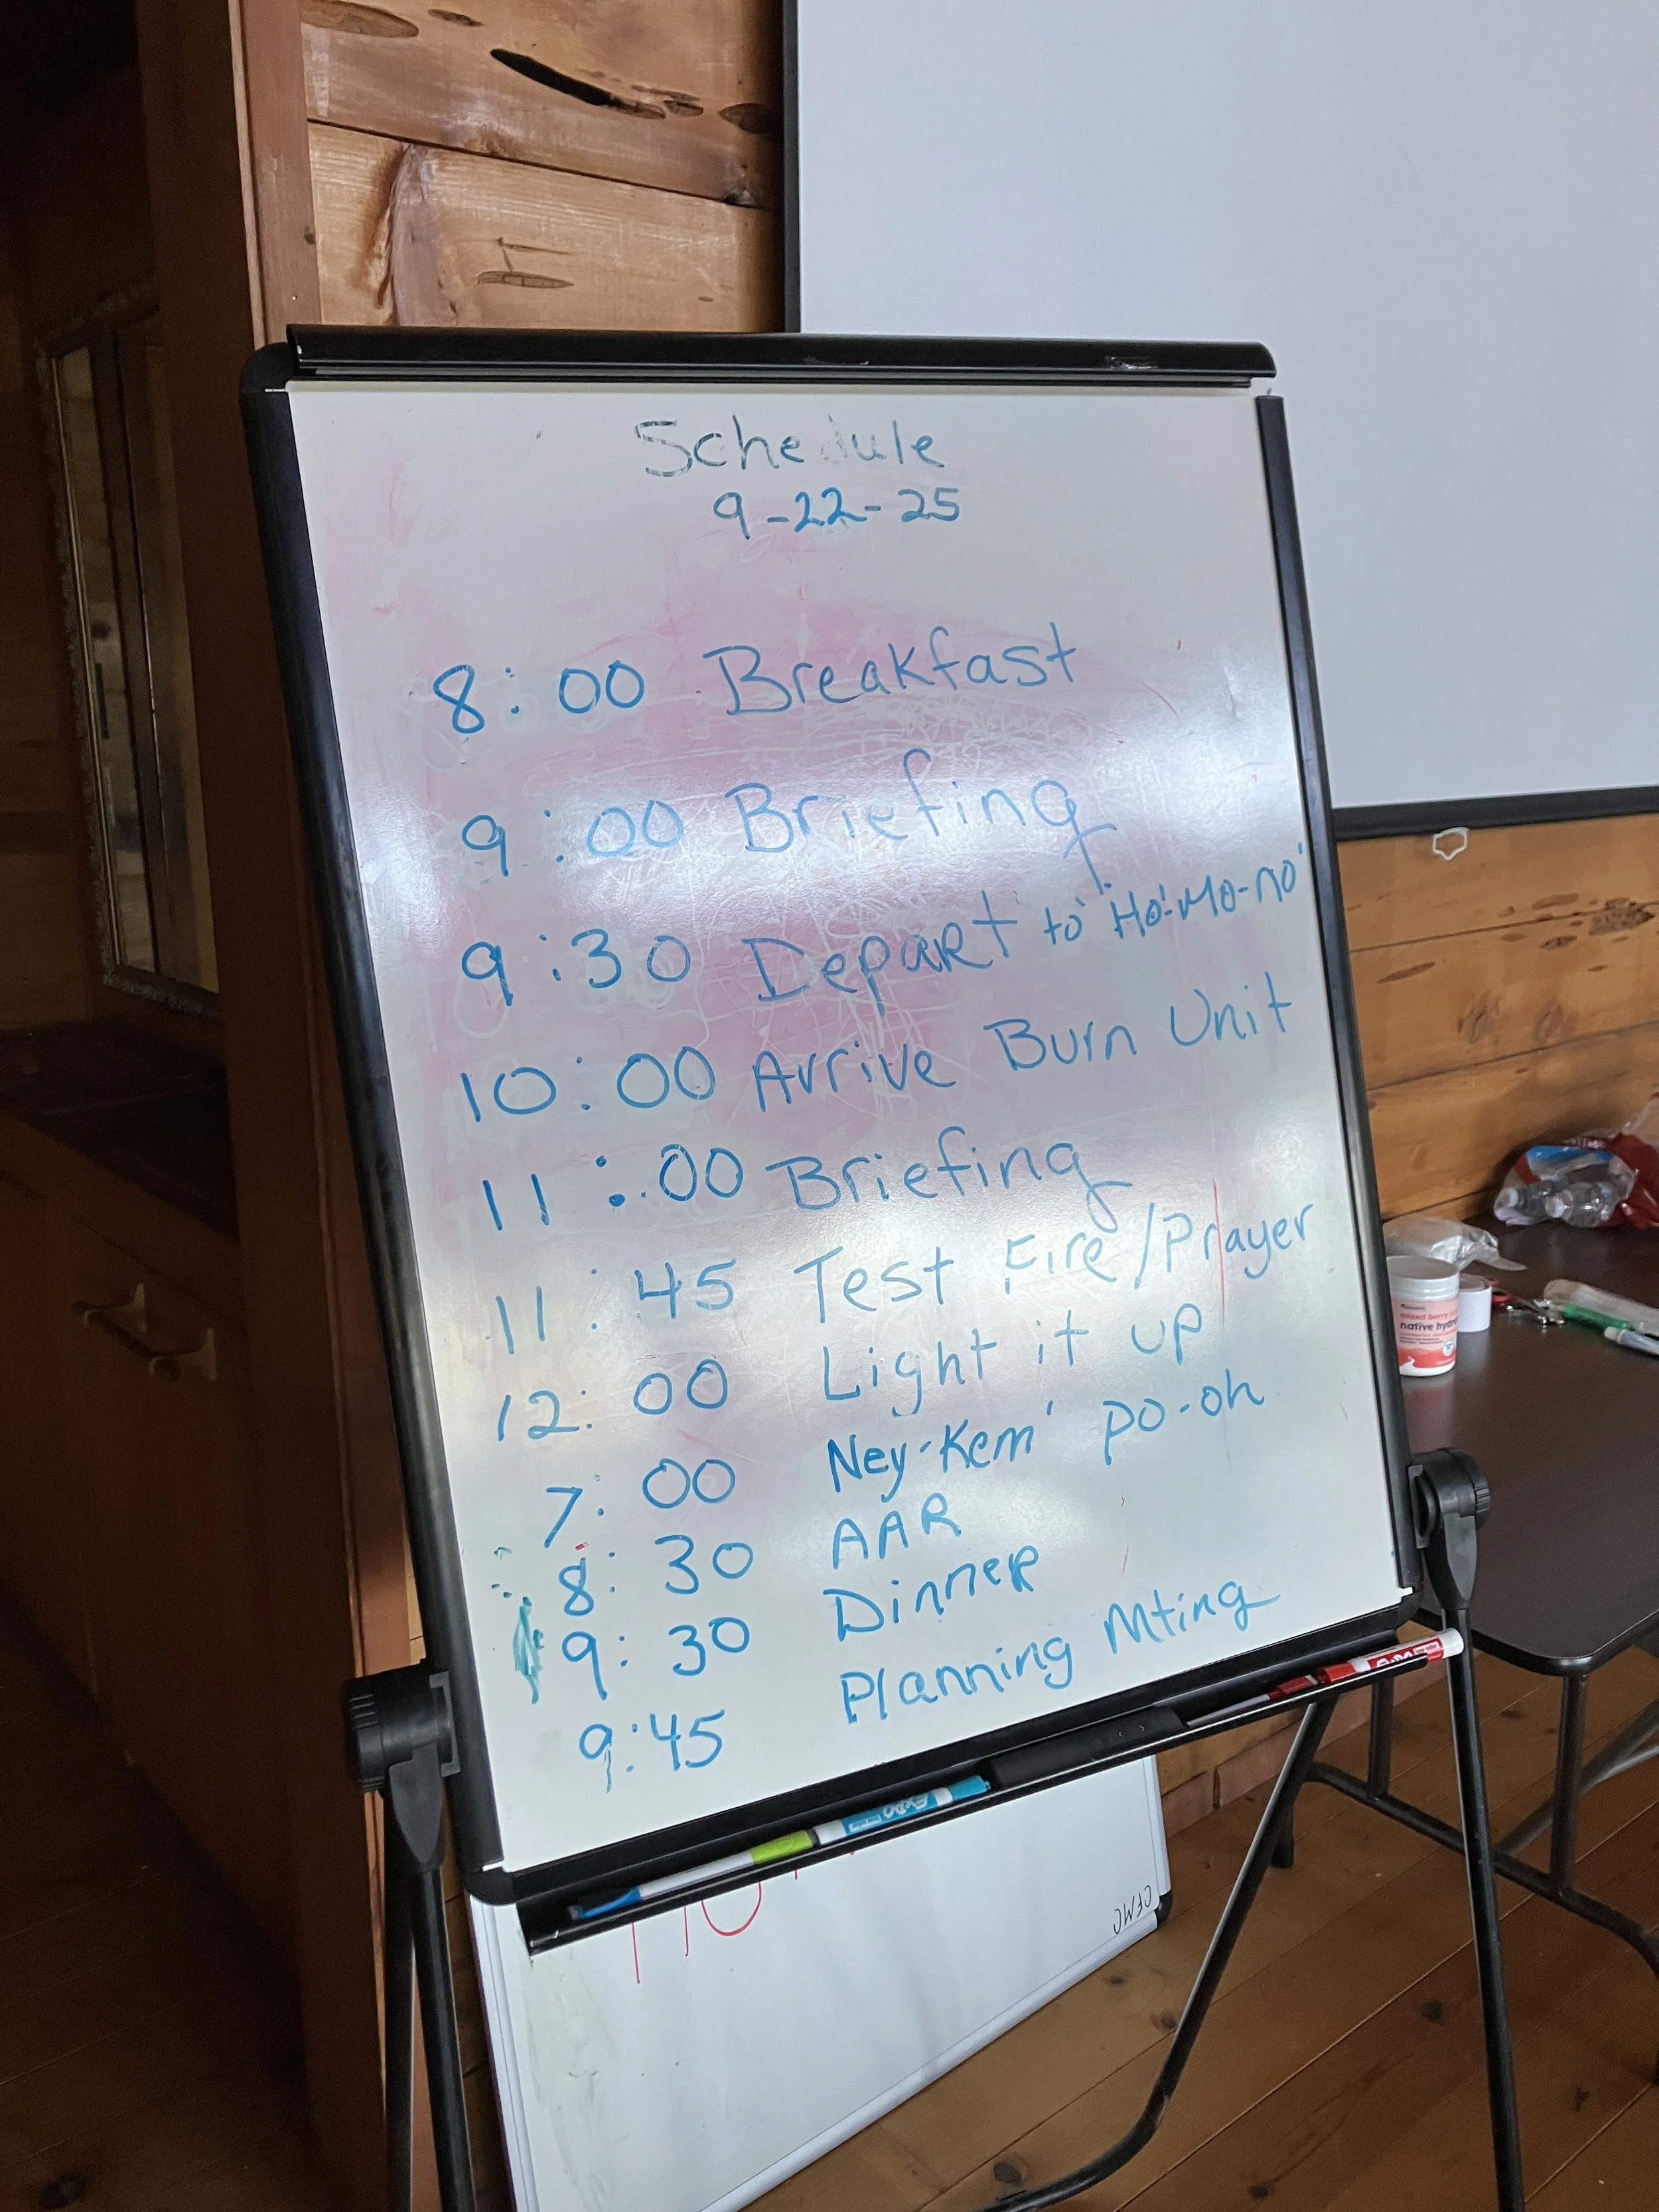 Schedule
9-22-25
8:00 Breakfast
9:00 Briefing
9:30 Depart to Ho'-Mo-no'
10:00 Arrive Burn Unit
11:00 Briefing
11:45 Test Fire/Prayer
12:00 Light it up
7:00 Ney-Kem' po-oh
8:30 AAR
9:30 Dinner
9:45 Planning Mting
EXPO
CFWC
mixed berry
native hydr